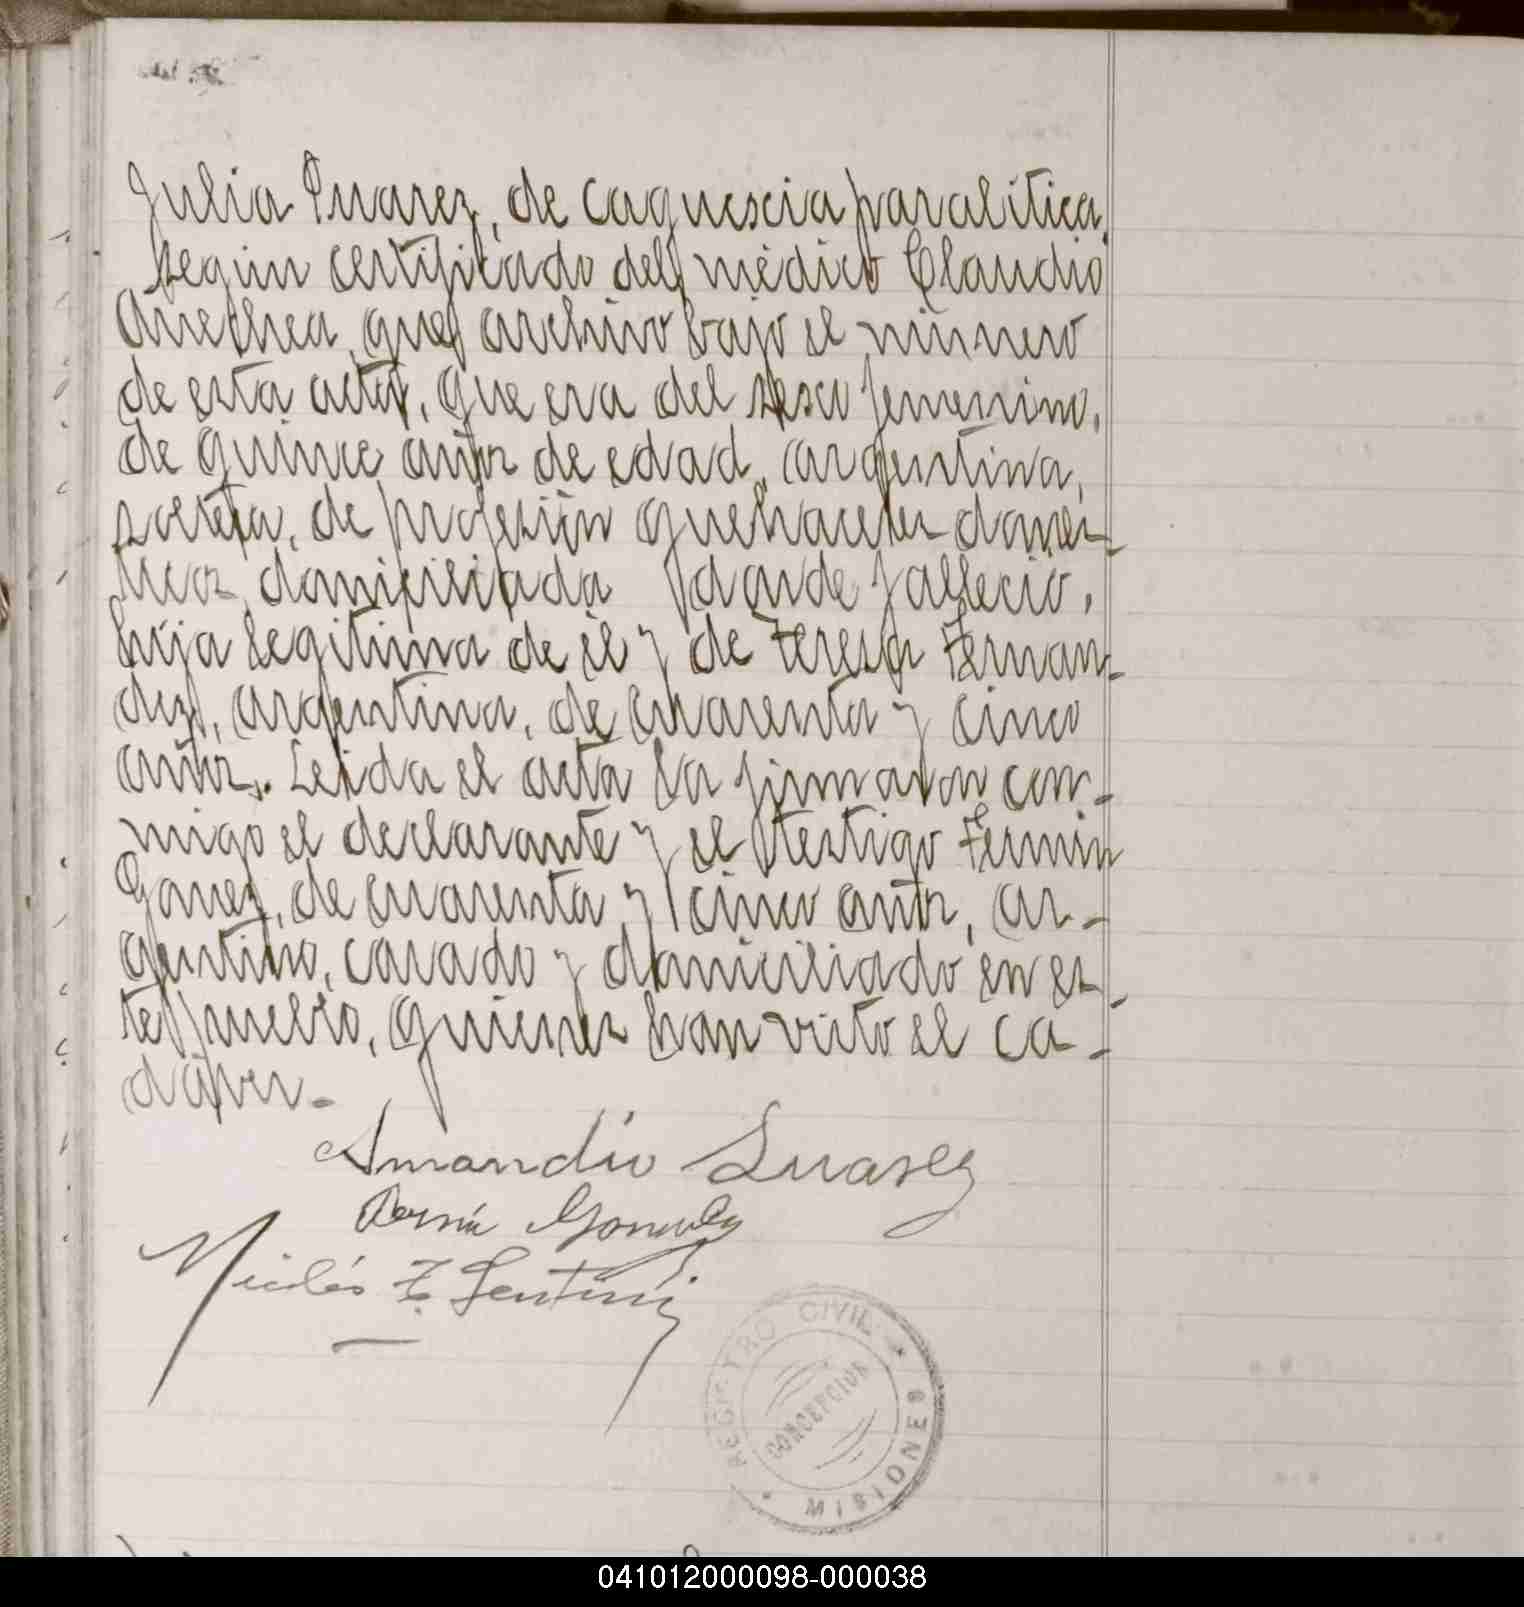 Julia Suarez, de caquescia paralitica,
según certificado del médico Claudio
Arrechea, que archivo bajo el número
de esta acta, que era del sexo femenino,
de quince años de edad, argentina,
soltera, de profesión quehaceres domés-
ticos, domiciliada donde falleció,
hija legítima de él y de Teresa Fernan-
dez, argentina, de cuarenta y cinco
años. Leida el acta la firmaron con-
migo el declarante y el testigo Fermin
Gomez, de cuarenta y cinco años, ar-
gentino, casado y domiciliado en es-
te pueblo, quienes han visto el ca-
dáver.-
Amandío Suarez
Nicolás F. Gentini
REGISTRO CIVIL
CONCEPCION
MISIONES
041012000098-000038